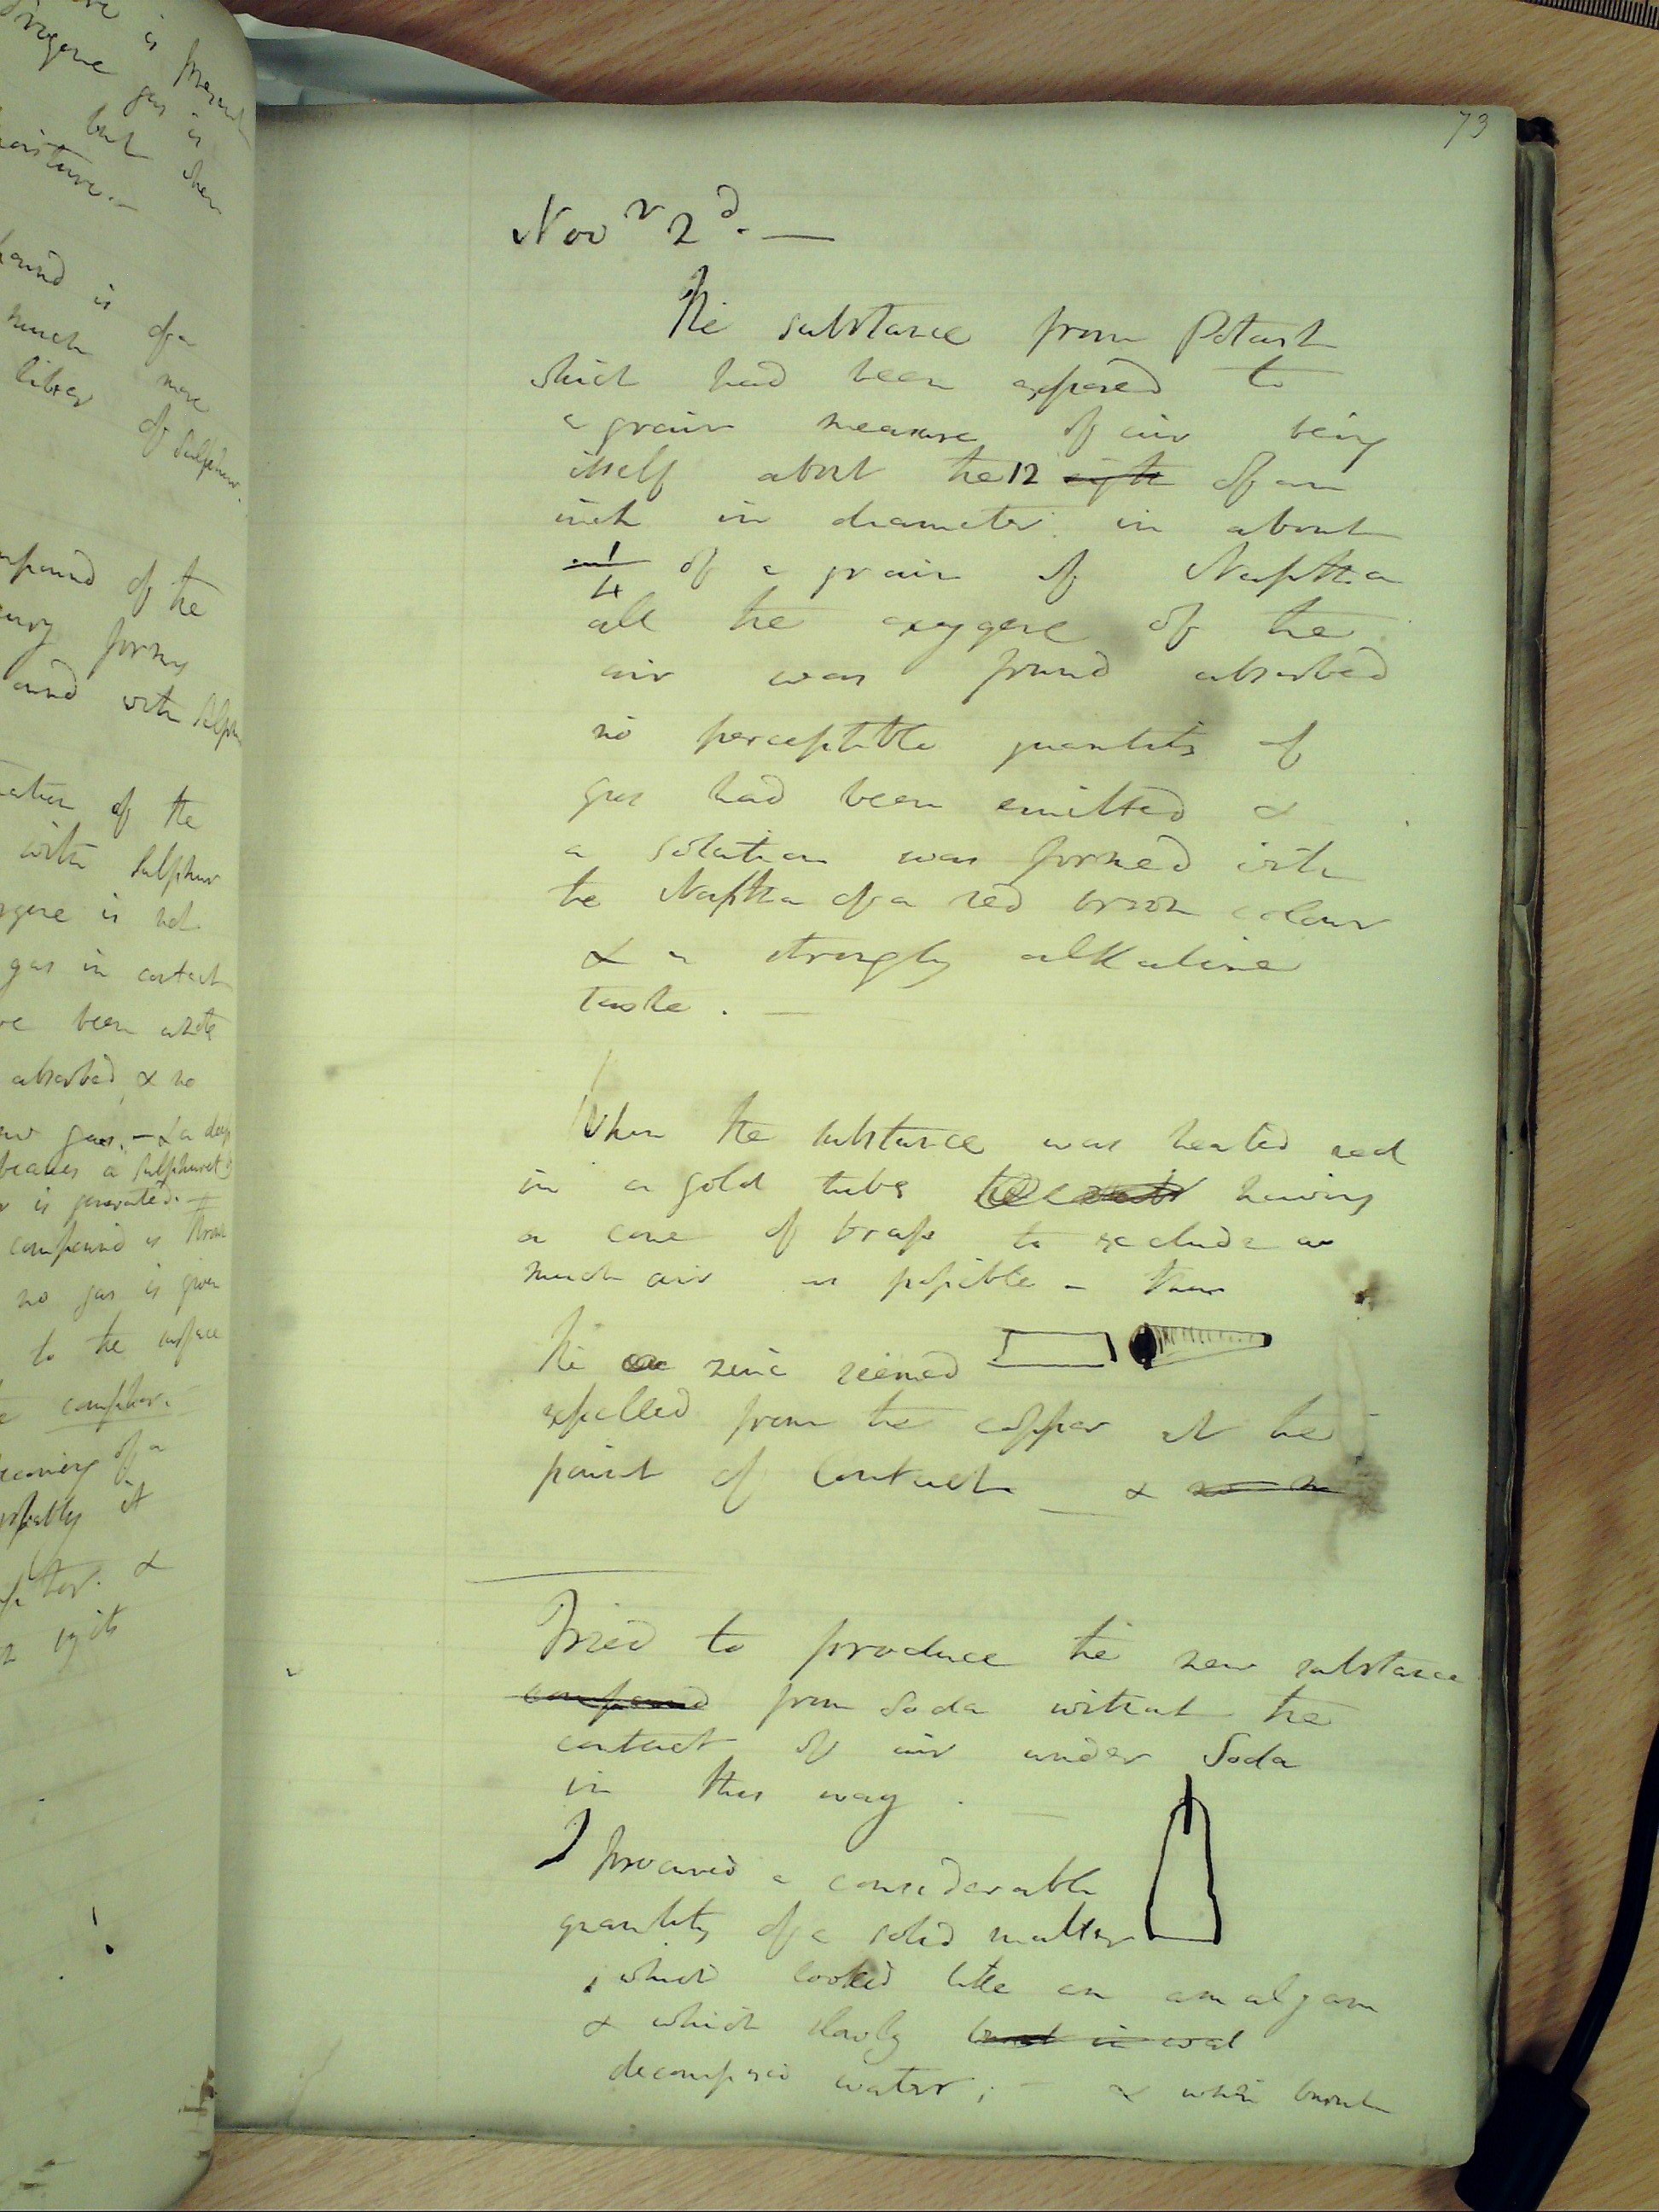 is present
oxygene gas is
but when
moisture.—
is of a
much more
liver of Sulphur.
compound of the
forms
and with Sulphur
of the
with Sulphur
is not
gas in contact
been white
absorbed & no
gas. — & a deep
becomes a sulphuret
is generated.
compound is thrown
no gas is given
to the surface
camphor.
of a
it
&
its
73
Novr 2d. —
The substance from Potash
which had been exposed to
a grain measure of air being
itself about the 12 eighth of an
inch in diameter. in about
1/4 of a grain of Naptha
all the oxygene of the
air was found absorbed
no perceptible quantity of
gas had been emitted &
a solution was formed with
the Naptha of a red brown colour
& a strongly alkaline
taste. —
When the substance was heated red
in a gold tube having
a cone of brass to exclude as
much air as possible — then
The zinc seemed
expelled from the copper at the
point of Contact — & no
Tried to produce the new substance
compound from Soda without the
contact of air under Soda
in this way.
I procured a considerable
quantity of a solid matter
which looked like an amalgam
& which slowly burnt in wat
decomposed water; — & when burnt